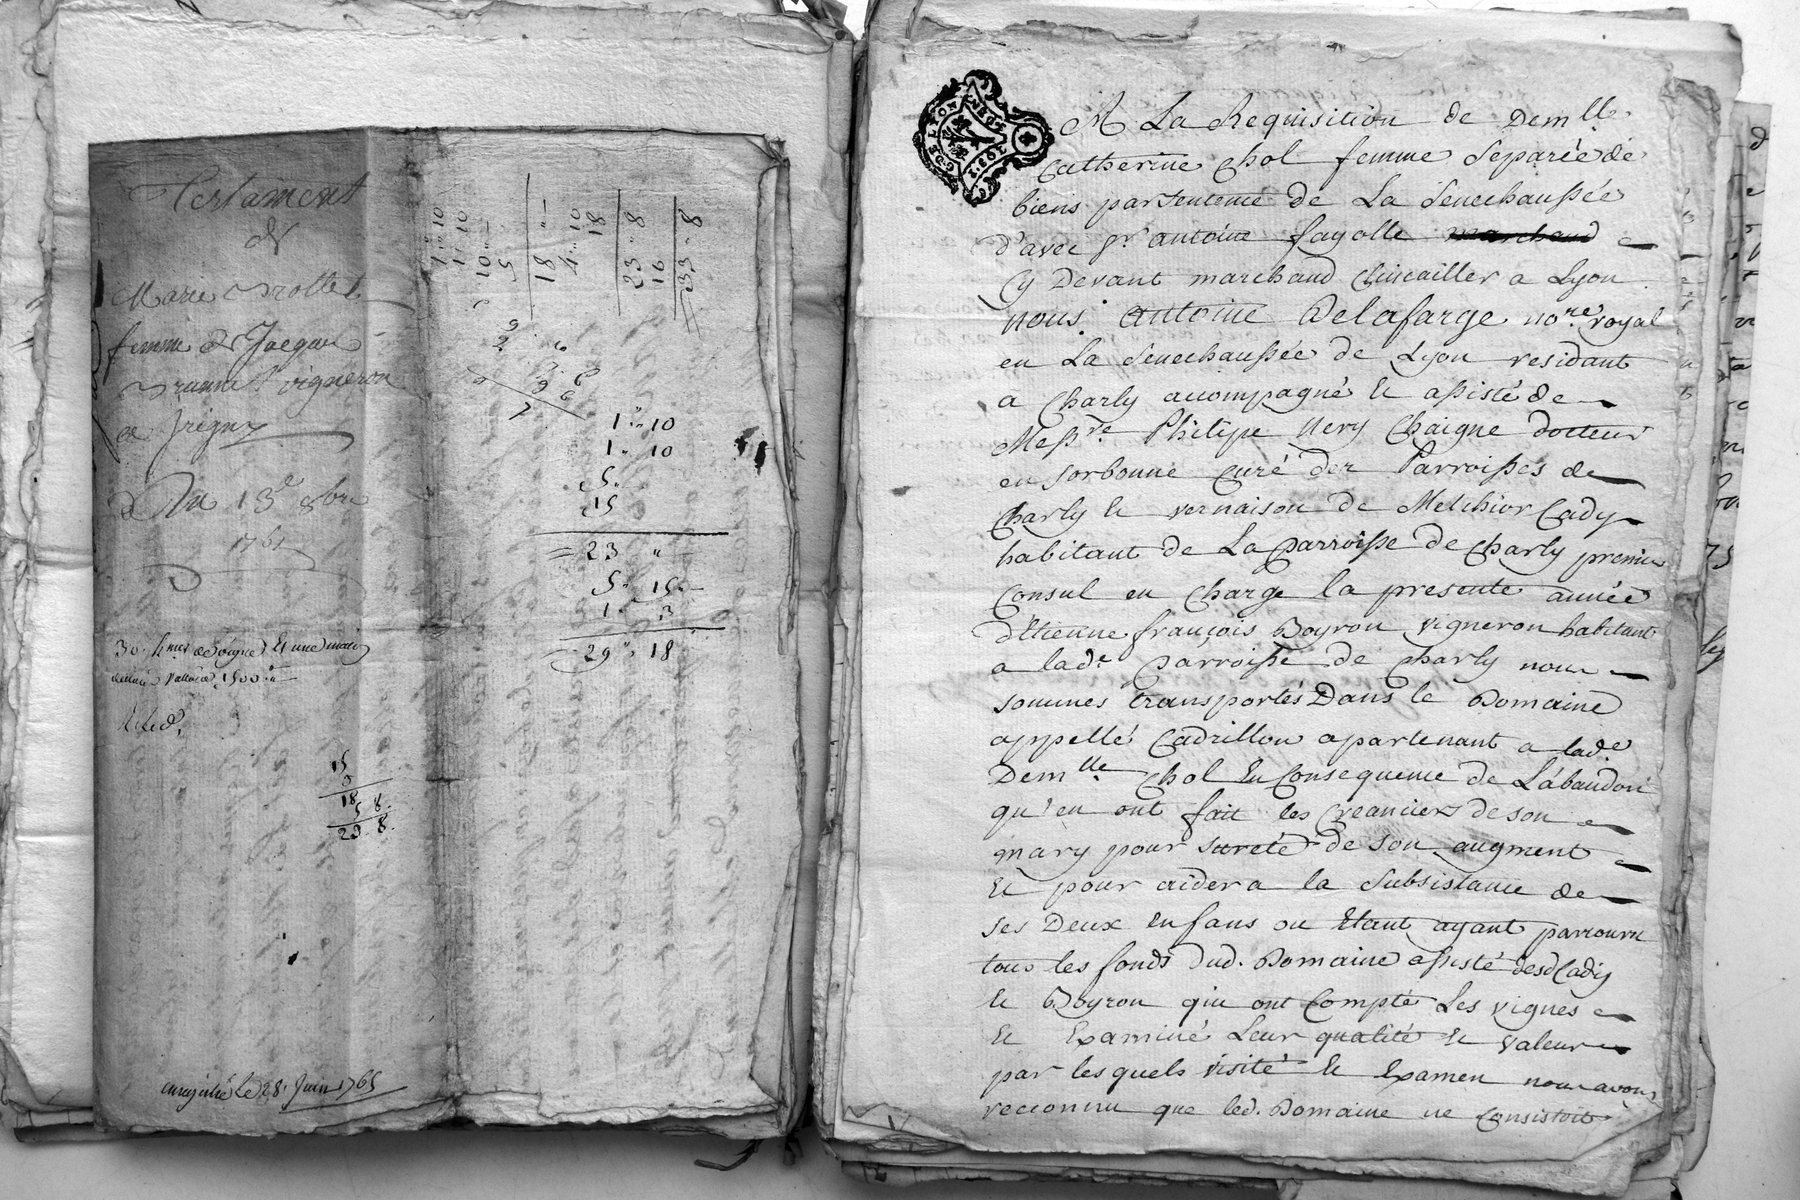 Testament
de
Marie
femme de Jacques
vigneron
de Irigny
Du 13e 8bre
1761
30 hmes de vigne Et une maison
1500
15
3
18
5 8.
23. 8.
enregistré le 28. Juin 1765
1 " 10
1 " 10
10 " —
5
18 " —
4 " 10
18
23 " 8
10
33 " 8
1 " 10
1 " 10
5 "
15
23 "
5 " 15 " —
1 " 3
29 " 18
G. DE LYON
A La Requisition de Demlle
Catherine Chol femme Separée de
biens par Sentence de La Senechaussée
d'avec Sr antoine fayolle marchand
Cy Devant marchand Clincailler a Lyon
nous Antoine Delafarge nore royal
en La Senechaussée de Lyon residant
a Charly accompagné et assisté de
Messre Philipe Nery Chaigne docteur
en Sorbonne curé des Parroisses de
Charly et vernaison de Melchior Cady
habitant de La parroisse de Charly premier
Consul en Charge la presente année
d'Etienne françois Boyron vigneron habitant
a lade Parroisse de Charly nous
sommes transportés Dans le Domaine
appellé Cadrillon apartenant a lade
Demlle Chol En Consequence de L'abandon
qu'en ont fait les Creanciers de son
mary pour sureté de son augment
Et pour aider a la Subsistance de
ses Deux Enfans ou Etant ayant parcouru
tous les fonds dud. Domaine assisté desd Cady
et Boyron qui ont Compté Les vignes
et Examiné Leur qualité et valeur
par lesquels visité et Examen nous avons
reconnu que led. Domaine ne Consistoit